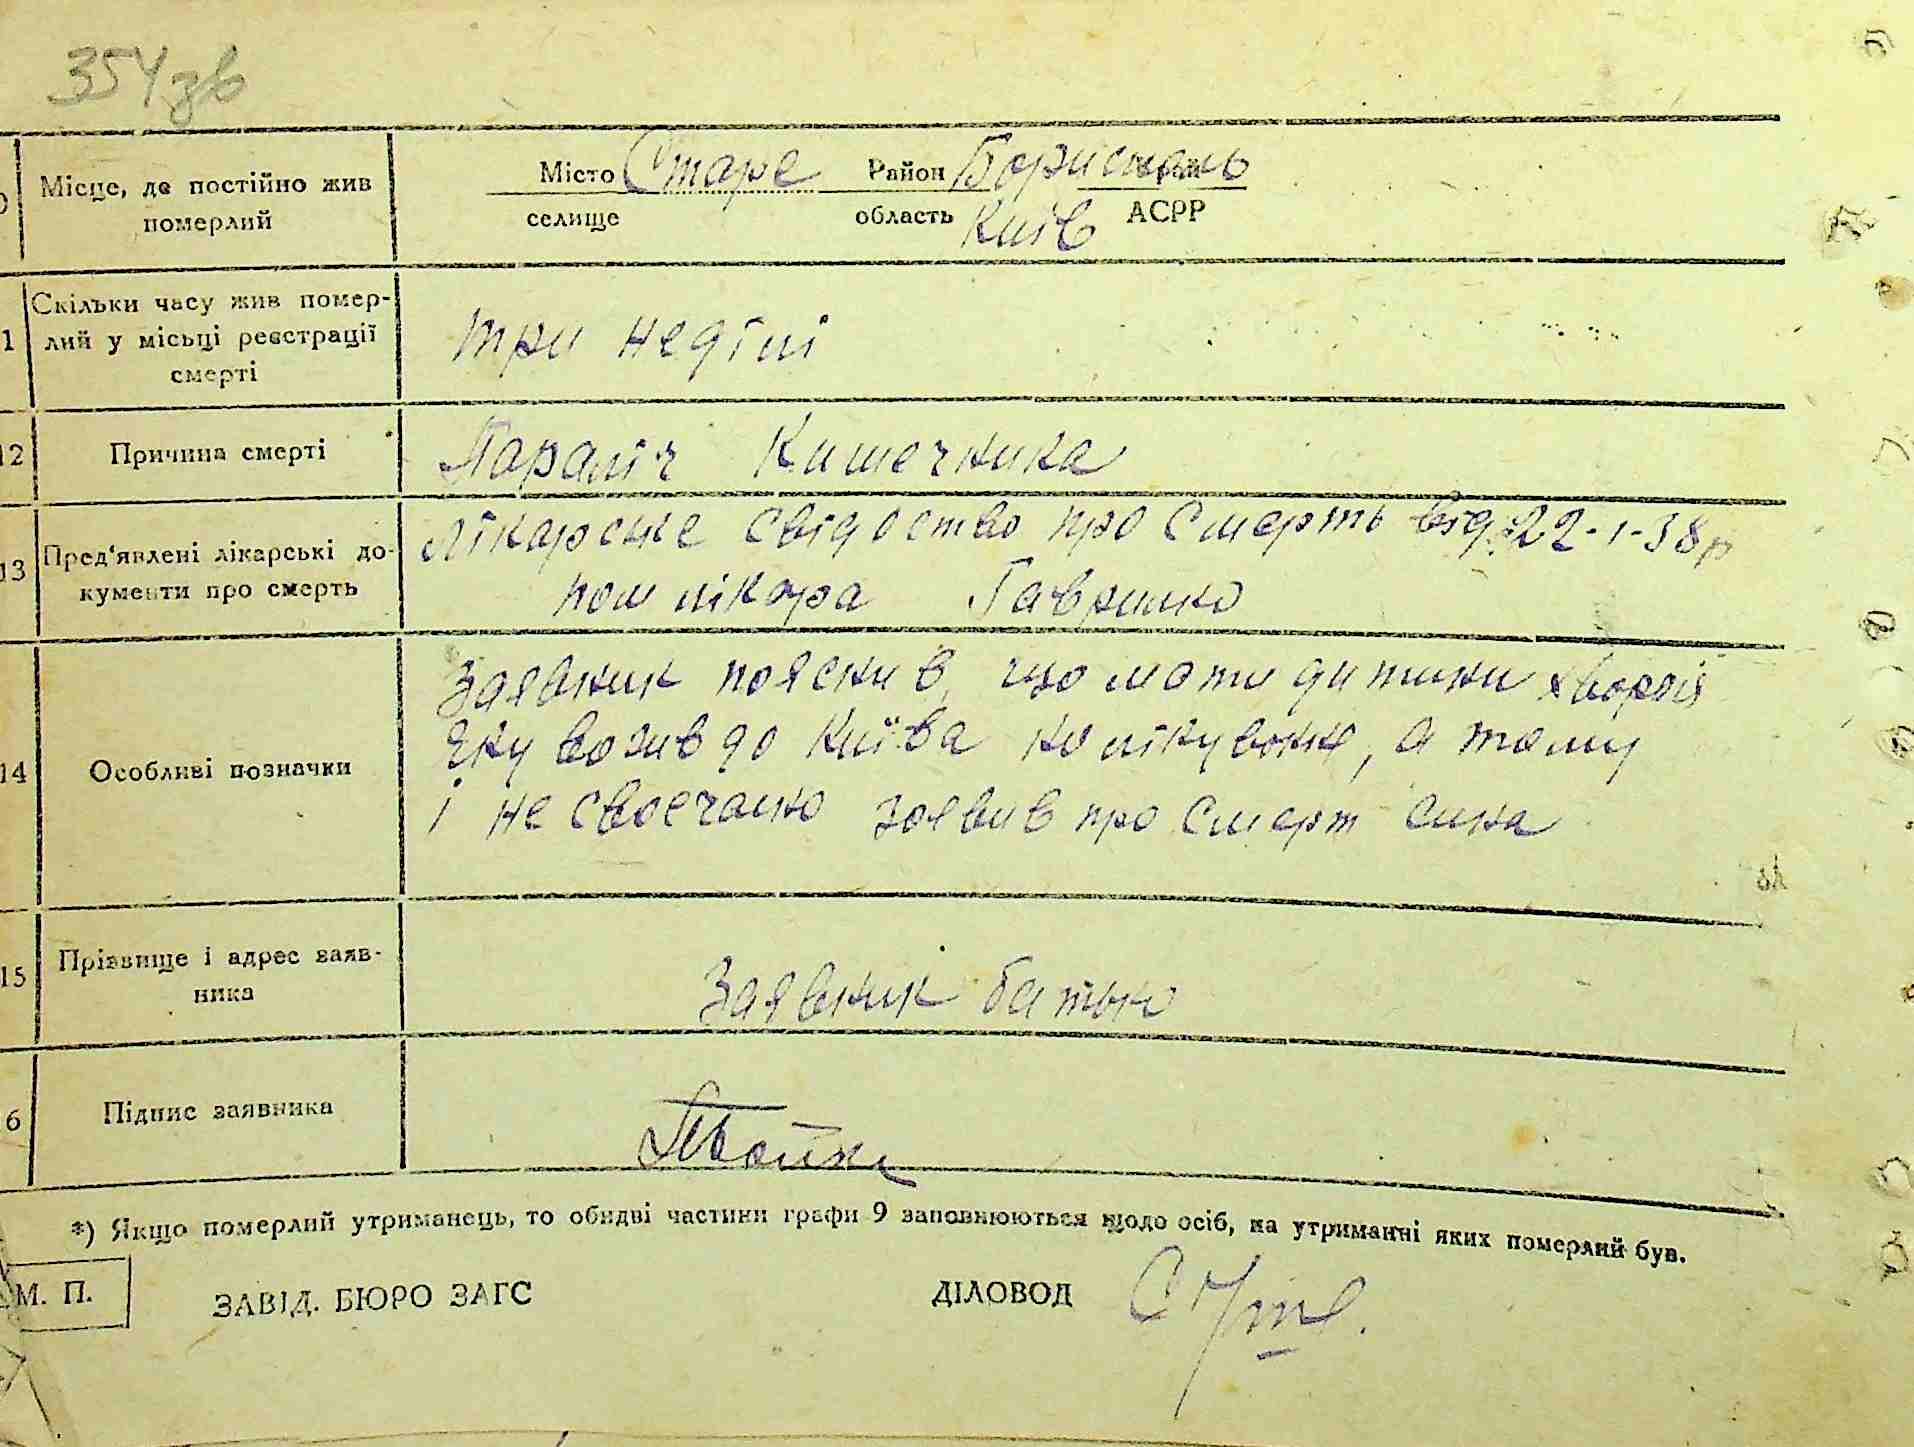 354зв
Місце, де постійно жив померлий
Місто Старе Район Бориспель
селище область Київ АСРР
1 Скільки часу жив помер-
лий у місьці реєстрації
смерті
три неділі
12 Причина смерті
Параліч Кишечника
13 Пред'явлені лікарські до-
кументи про смерть
Лікарске свідоство про Смерть від 22-1-38р
пом лікара Гаврилко
14 Особливі позначки
Заявник пояснив, що мати дитини хворія
Яку возив до Київа на лікування, а тому
і не своечасно заявив про Смерт сина
15 Прізвище і адрес заяв-
ника
Заявник батько
6 Підпис заявника
*) Якщо померлий утриманець, то обидві частини графи 9 заповнюються щодо осіб, на утриманні яких померлий був.
М. П.
ЗАВІД. БЮРО ЗАГС ДІЛОВОД